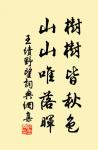 樹樹皆秋色
山山唯落暉
王績野望詞典網集